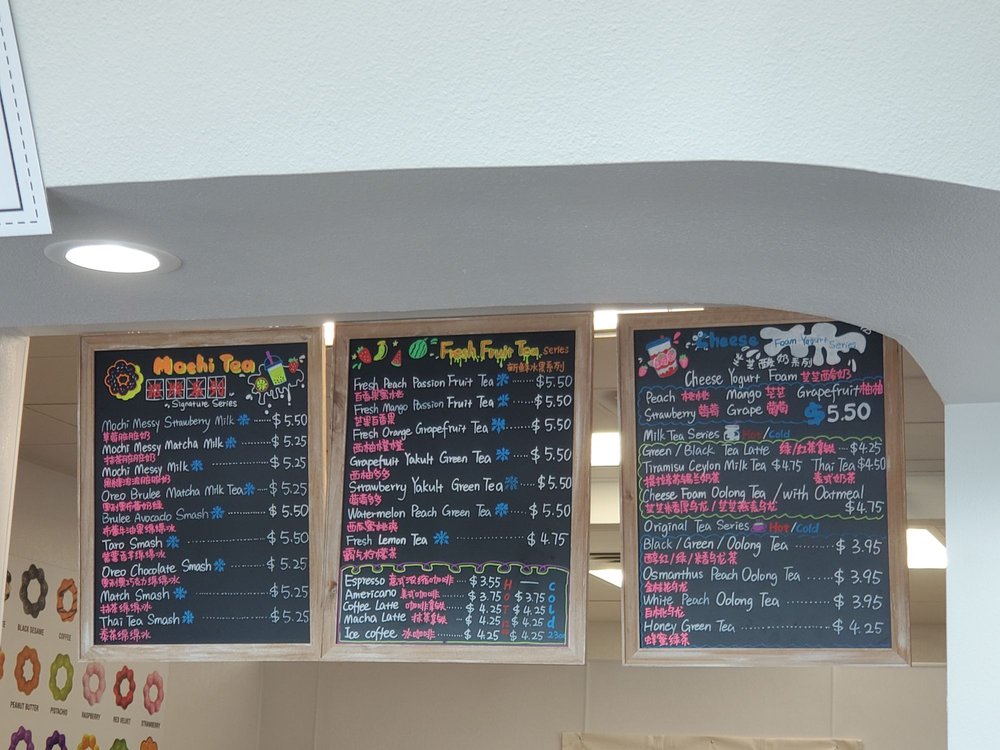 Mochi Tea
Signature Series
Mochi Messy Strawberry Milk $5.50
草莓脏脏奶
Mochi Messy Matcha Milk $5.25
抹茶脏脏奶
Mochi Messy Milk $5.25
Oreo Brulee Matcha Milk Tea $5.25
Brulee Avocado Smash $5.50
Taro Smash $5.50
Oreo Chocolate Smash $5.25
Match Smash $5.25
抹茶绵绵冰
Thai Tea Smash $5.25
泰茶绵绵冰
Fresh Fruit Tea Series
新鲜水果系列
Fresh Peach Passion Fruit Tea $5.50
百香果蜜桃
Fresh Mango Passion Fruit Tea $5.50
芒果百香果
Fresh Orange Grapefruit Tea $5.50
西柚橙橙
Grapefruit Yakult Green Tea $5.50
西柚多多
Strawberry Yakult Green Tea $5.50
Watermelon Peach Green Tea $5.50
Fresh Lemon Tea $4.75
霸气柠檬茶
Espresso 意式浓缩咖啡 $3.55 —
Americano 美式咖啡 $3.75 $3.75
Coffee Latte 咖啡拿铁 $4.25 $4.25
Macha Latte 抹茶拿铁 $4.25 $4.25
Ice coffee 冰咖啡 $4.25 $4.25
Cold
Cheese Foam Yogurt Series
芝士酸奶系列
Cheese Yogurt Foam 芝芝酸奶
Peach 桃桃 Mango 芒芒 Grapefruit 柚柚
Strawberry 莓莓 Grape 葡萄 $5.50
Milk Tea Series Hot/Cold
Green/Black Tea Latte 绿/红茶拿铁 $4.25
Tiramisu Ceylon Milk Tea $4.75 Thai Tea $4.50
泰式奶茶
Cheese Foam Oolong Tea / with Oatmeal
$4.75
Original Tea Series Hot/Cold
Black/Green/Oolong Tea $3.95
Osmanthus Peach Oolong Tea $3.95
White Peach Oolong Tea $3.95
白桃乌龙
Honey Green Tea $4.25
蜂蜜绿茶
BLACK SESAME
COFFEE
PEANUT BUTTER
PISTACHIO
RASPBERRY
RED VELVET
STRAWBERRY